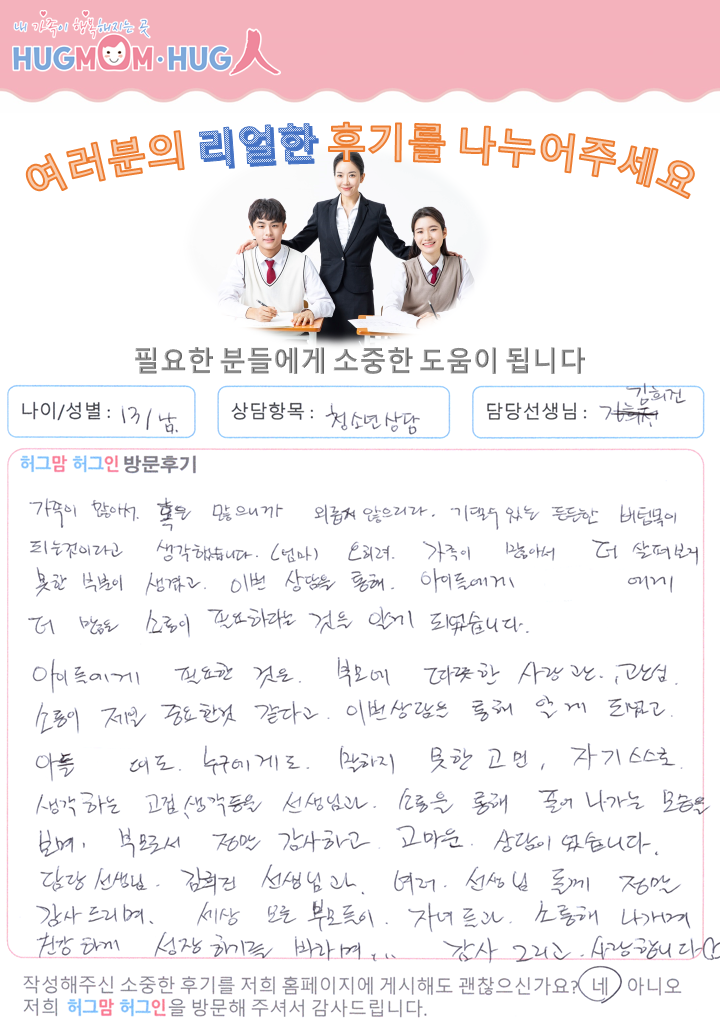 내 가족이 행복해지는 곳
HUGMOM·HUG人
여러분의 리얼한 후기를 나누어주세요
필요한 분들에게 소중한 도움이 됩니다
나이/성별 : 13/남.
상담항목 : 청소년상담
담당선생님 : 김희진
허그맘 허그인 방문후기
가족이 많아서. 혹은 많으니까 외롭지 않으리라. 기댈수 있는 든든한 버팀목이
되는것이라고 생각했습니다. (엄마) 오히려. 가족이 많아서 더 살펴보지
못한 부분이 생겼고. 이번 상담을 통해. 아이들에게 에게
더 많은 소통이 필요하다는 것을 알게 되었습니다.
아이들에게 필요한 것은. 부모에 따뜻한 사랑과. 관심.
소통이 제일 중요한것 같다고. 이번상담을 통해 알게 되었고.
아들 또. 누구에게도. 말하지 못한 고민, 자기스스로.
생각하는 고집, 생각등을 선생님과. 소통을 통해 풀어 나가는 모습을
보며. 부모로서 정말 감사하고 고마운. 상담이었습니다.
담당선생님. 김희진 선생님과. 여러. 선생님 들께 정말
감사드리며. 세상 모든 부모들이. 자녀들과. 소통해 나가며
건강하게 성장하기를 바라며... 감사 그리고. 사랑합니다
작성해주신 소중한 후기를 저희 홈페이지에 게시해도 괜찮으신가요? 네 아니오
저희 허그맘 허그인을 방문해 주셔서 감사드립니다.